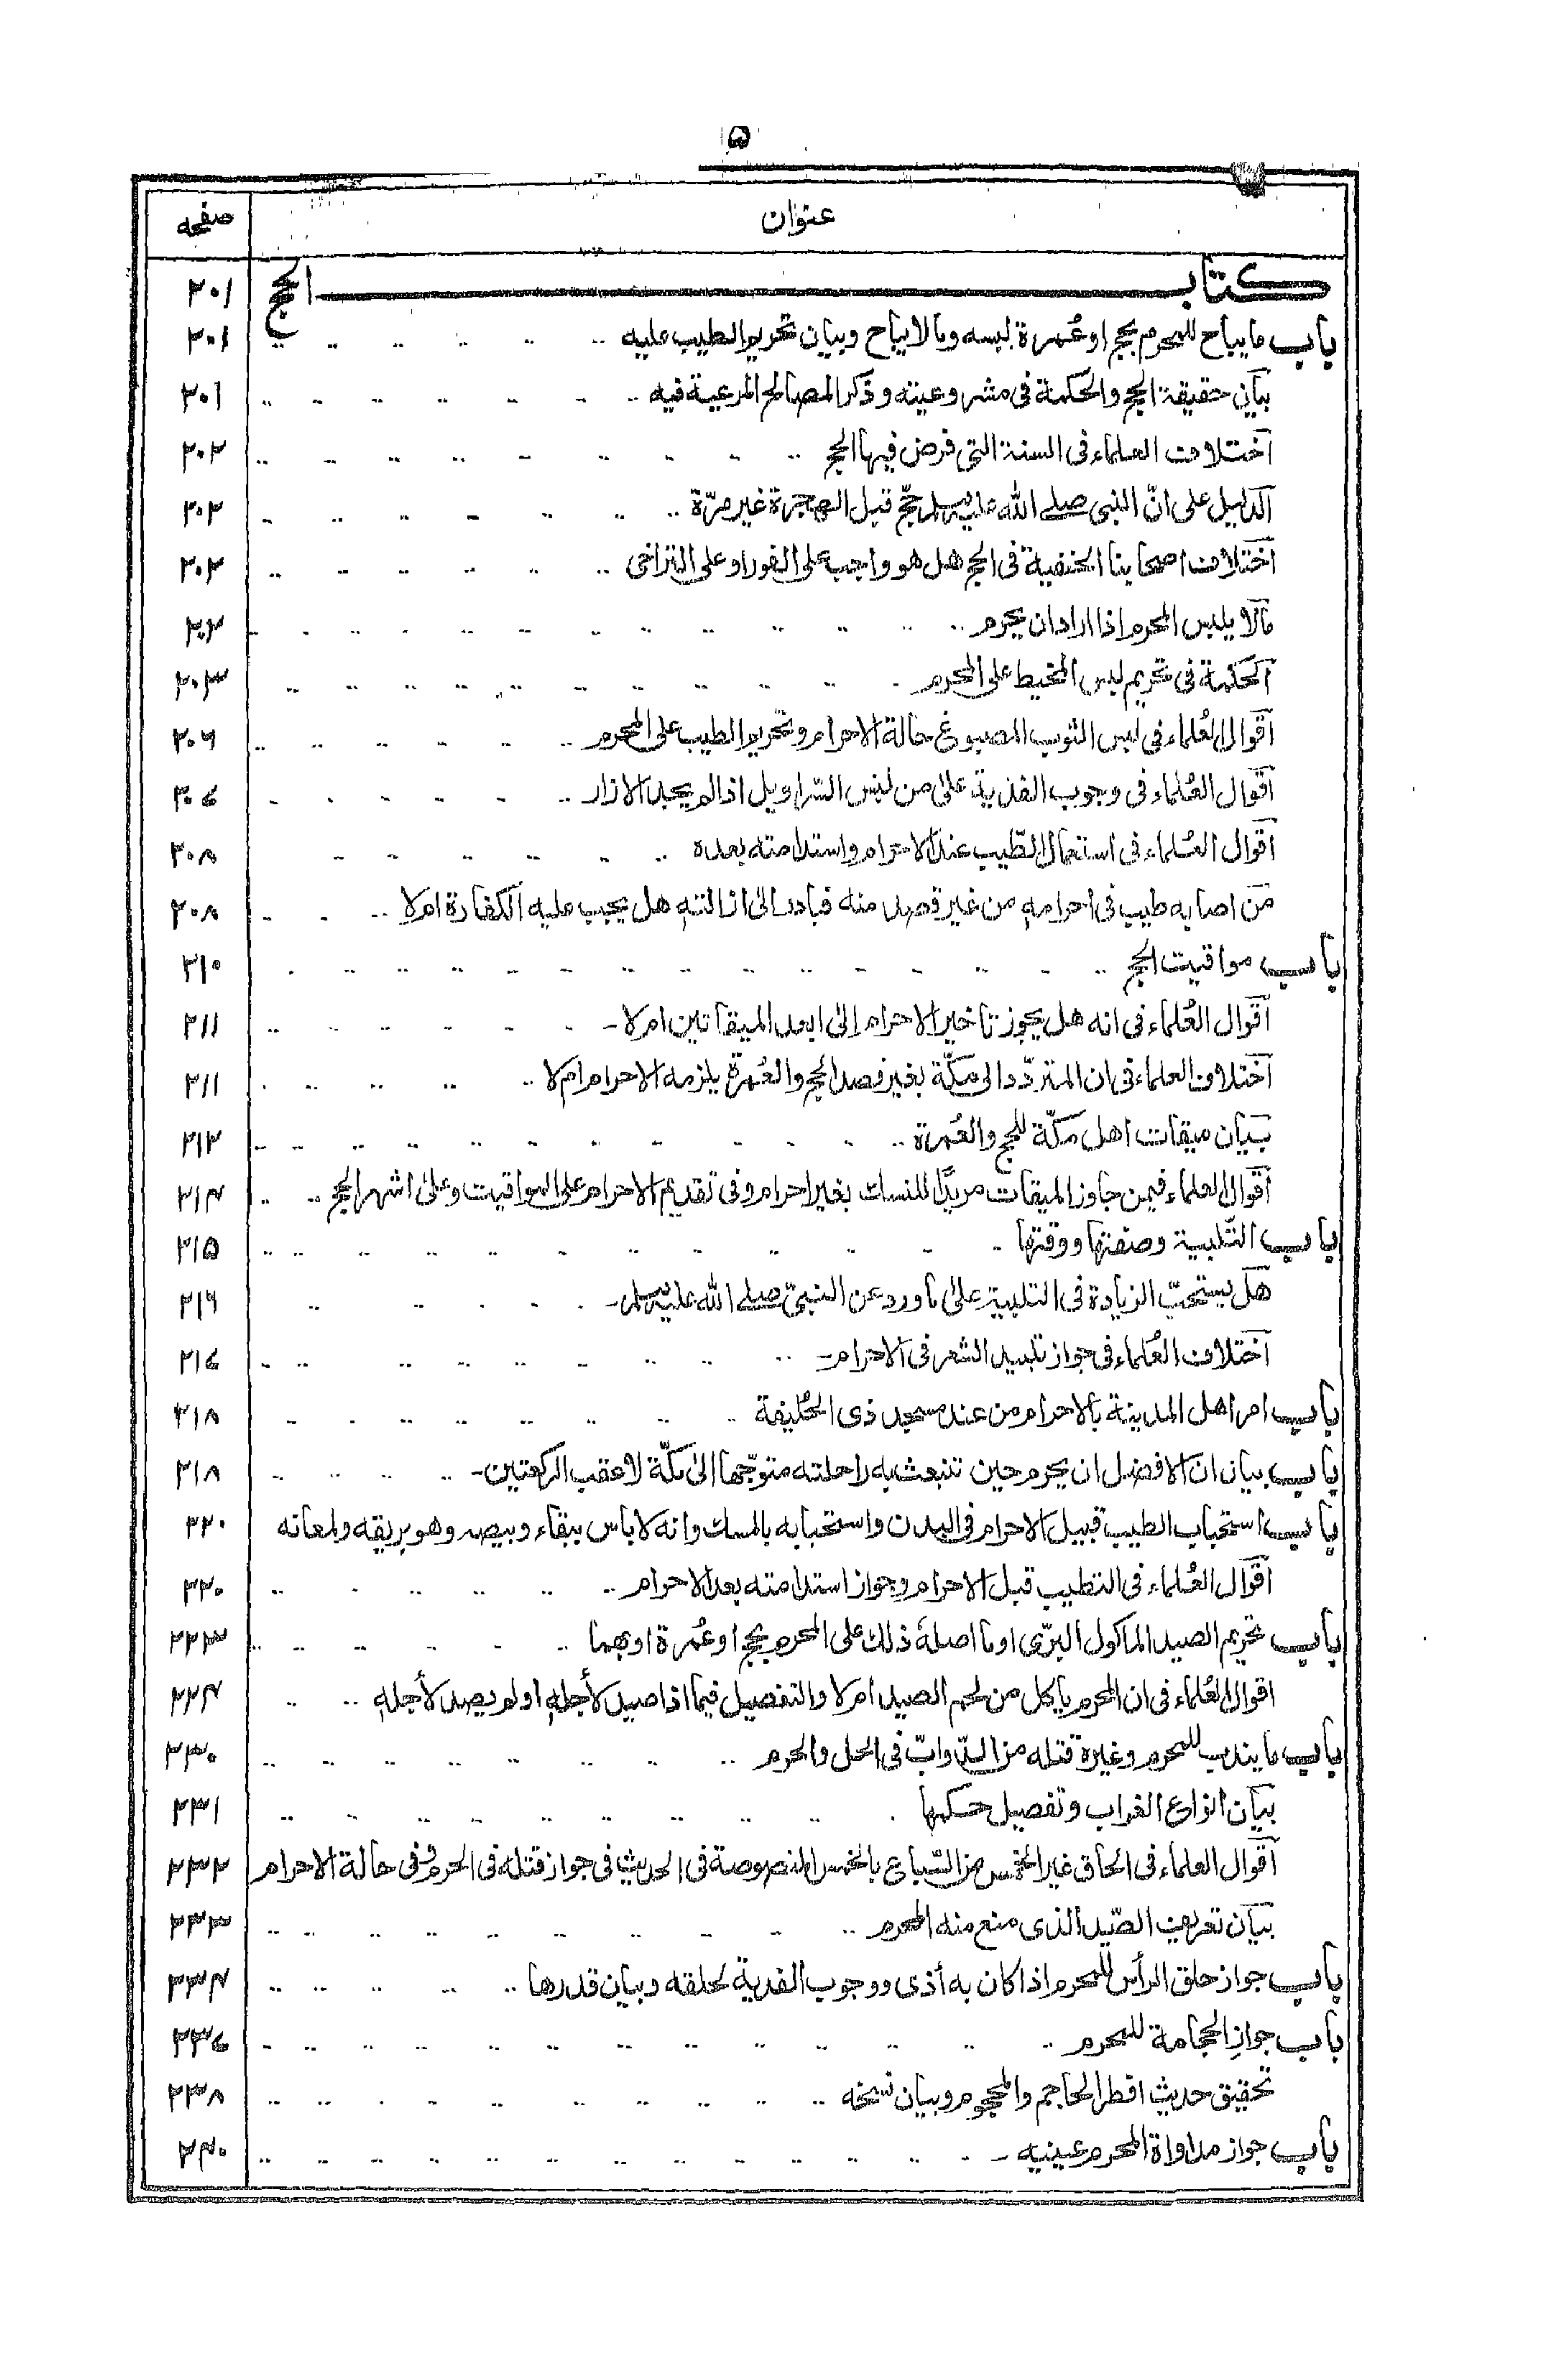 ٥
عنوان صفحه
كتاب الحج ٢٠١
باب ما يباح للمحرم بحج او عُمرة لبسه وما لا يباح وبيان تحريم الطيب عليه ٢٠١
بيان حقيقة الحج والحكمة فى مشروعيته وذكر المصالح المرعية فيه ٢٠١
اختلاف العلماء فى السنة التى فرض فيها الحج ٢٠٢
الدليل على انّ النبى صلے الله عليه وسلم حجّ قبل الهجرة غير مرّة ٢٠٢
اختلاف اصحابنا الحنفية فى الحج هل هو واجب على الفور او على التراخى ٢٠٢
ما لا يلبس المحرم اذا اراد ان يحرم ٢٠٢
الحكمة فى تحريم لبس المخيط على المحرم ٢٠٣
اقوال العُلماء فى لبس الثوب المصبوغ حالة الاحرام وتحريم الطيب على المحرم ٢٠٦
اقوال العُلماء فى وجوب الفدية على من لبس السّراويل اذا لم يجد الازار ٢٠٧
اقوال العُلماء فى استعمال الطّيب عند الاحرام واستدامته بعده ٢٠٨
من اصابه طيب فى احرامه من غير قصد منه فبادر الى ازالته هل يجب عليه الكفارة ام لا ٢٠٨
باب مواقيت الحج ٢١٠
اقوال العُلماء فى انه هل يجوز تاخير الاحرام الى ابعد الميقاتين ام لا ٢١١
اختلاف العلماء فى ان المتردّد الى مكّة بغير قصد الحج والعُمرة يلزمه الاحرام ام لا ٢١١
بيان ميقات اهل مكّة للحج والعُمرة ٢١٢
اقوال العلماء فيمن جاوز الميقات مريدًا للنسك بغير احرام وفى تقديم الاحرام على المواقيت وعلى اشهر الحج ٢١٤
باب التّلبية وصفتها ووقتها ٢١٥
هل يستحبّ الزيادة فى التلبية على ما ورد عن النبىّ صلے الله عليه وسلم ٢١٦
اختلاف العُلماء فى جواز تلبيد الشعر فى الاحرام ٢١٧
باب امر اهل المدينة بالاحرام من عند مسجد ذى الحُليفة ٢١٨
باب بيان ان الافضل ان يحرم حين تنبعث به راحلته متوجّها الى مكّة لا عقب الركعتين ٢١٨
باب استحباب الطيب قبيل الاحرام فى البدن واستحبابه بالمسك وانه لا باس ببقاء وبيصه وهو بريقه ولمعانه ٢٢٠
اقوال العُلماء فى التطيب قبل الاحرام وجواز استدامته بعد الاحرام ٢٢٠
باب تحريم الصيد الماكول البرّى او ما اصله ذلك على المحرم بحج او عُمرة او بهما ٢٢٣
اقوال العُلماء فى ان المحرم ياكل من لحم الصيد ام لا والتفصيل فيما اذا صيد لأجله او لم يصد لأجله ٢٢٤
باب ما يندب للمحرم وغيرة قتله من الدّوابّ فى الحل والحرم ٢٣٠
بيان انواع الغراب وتفصيل حكمها ٢٣١
اقوال العلماء فى الحاق غير الخمس من السّباع بالخمس المنصوصة فى الحديث فى جواز قتله فى الحرم وفى حالة الاحرام ٢٣٢
بيان تعريف الصّيد الذى منع منه المحرم ٢٣٣
باب جواز حلق الرأس للمحرم اذا كان به أذى ووجوب الفدية لحلقه وبيان قدرها ٢٣٤
باب جواز الحجامة للمحرم ٢٣٧
تحقيق حديث افطر الحاجم والمحجوم وبيان نسخه ٢٣٨
باب جواز مداواة المحرم عينيه ٢٤٠